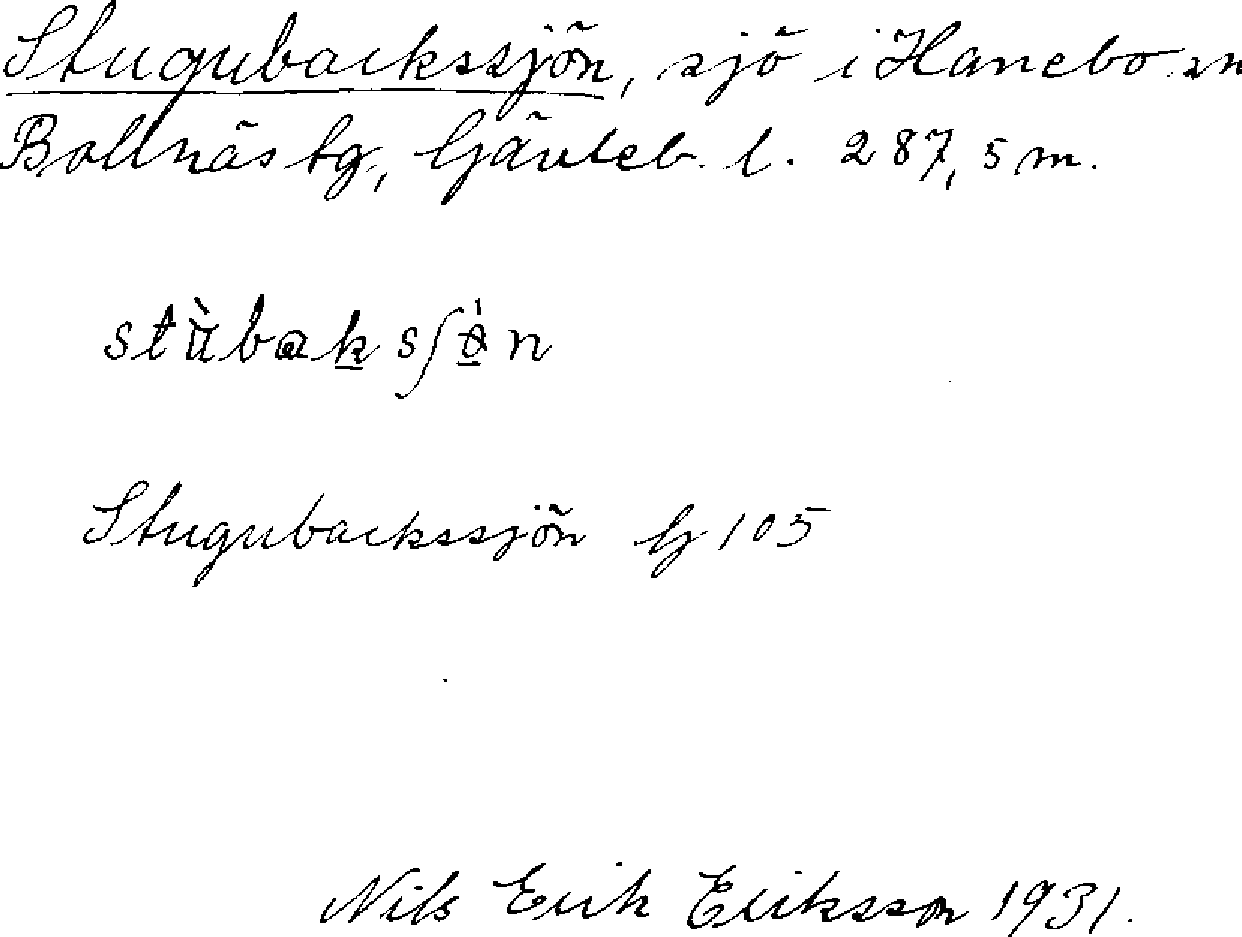 Stugubackssjön, sjö i Hanebo sn
Bollnäs tg, Gävleb. l. 287,5 m.
stùbaksʃøn
Stugubackssjön G 105
Nils Erik Eriksson 1931.